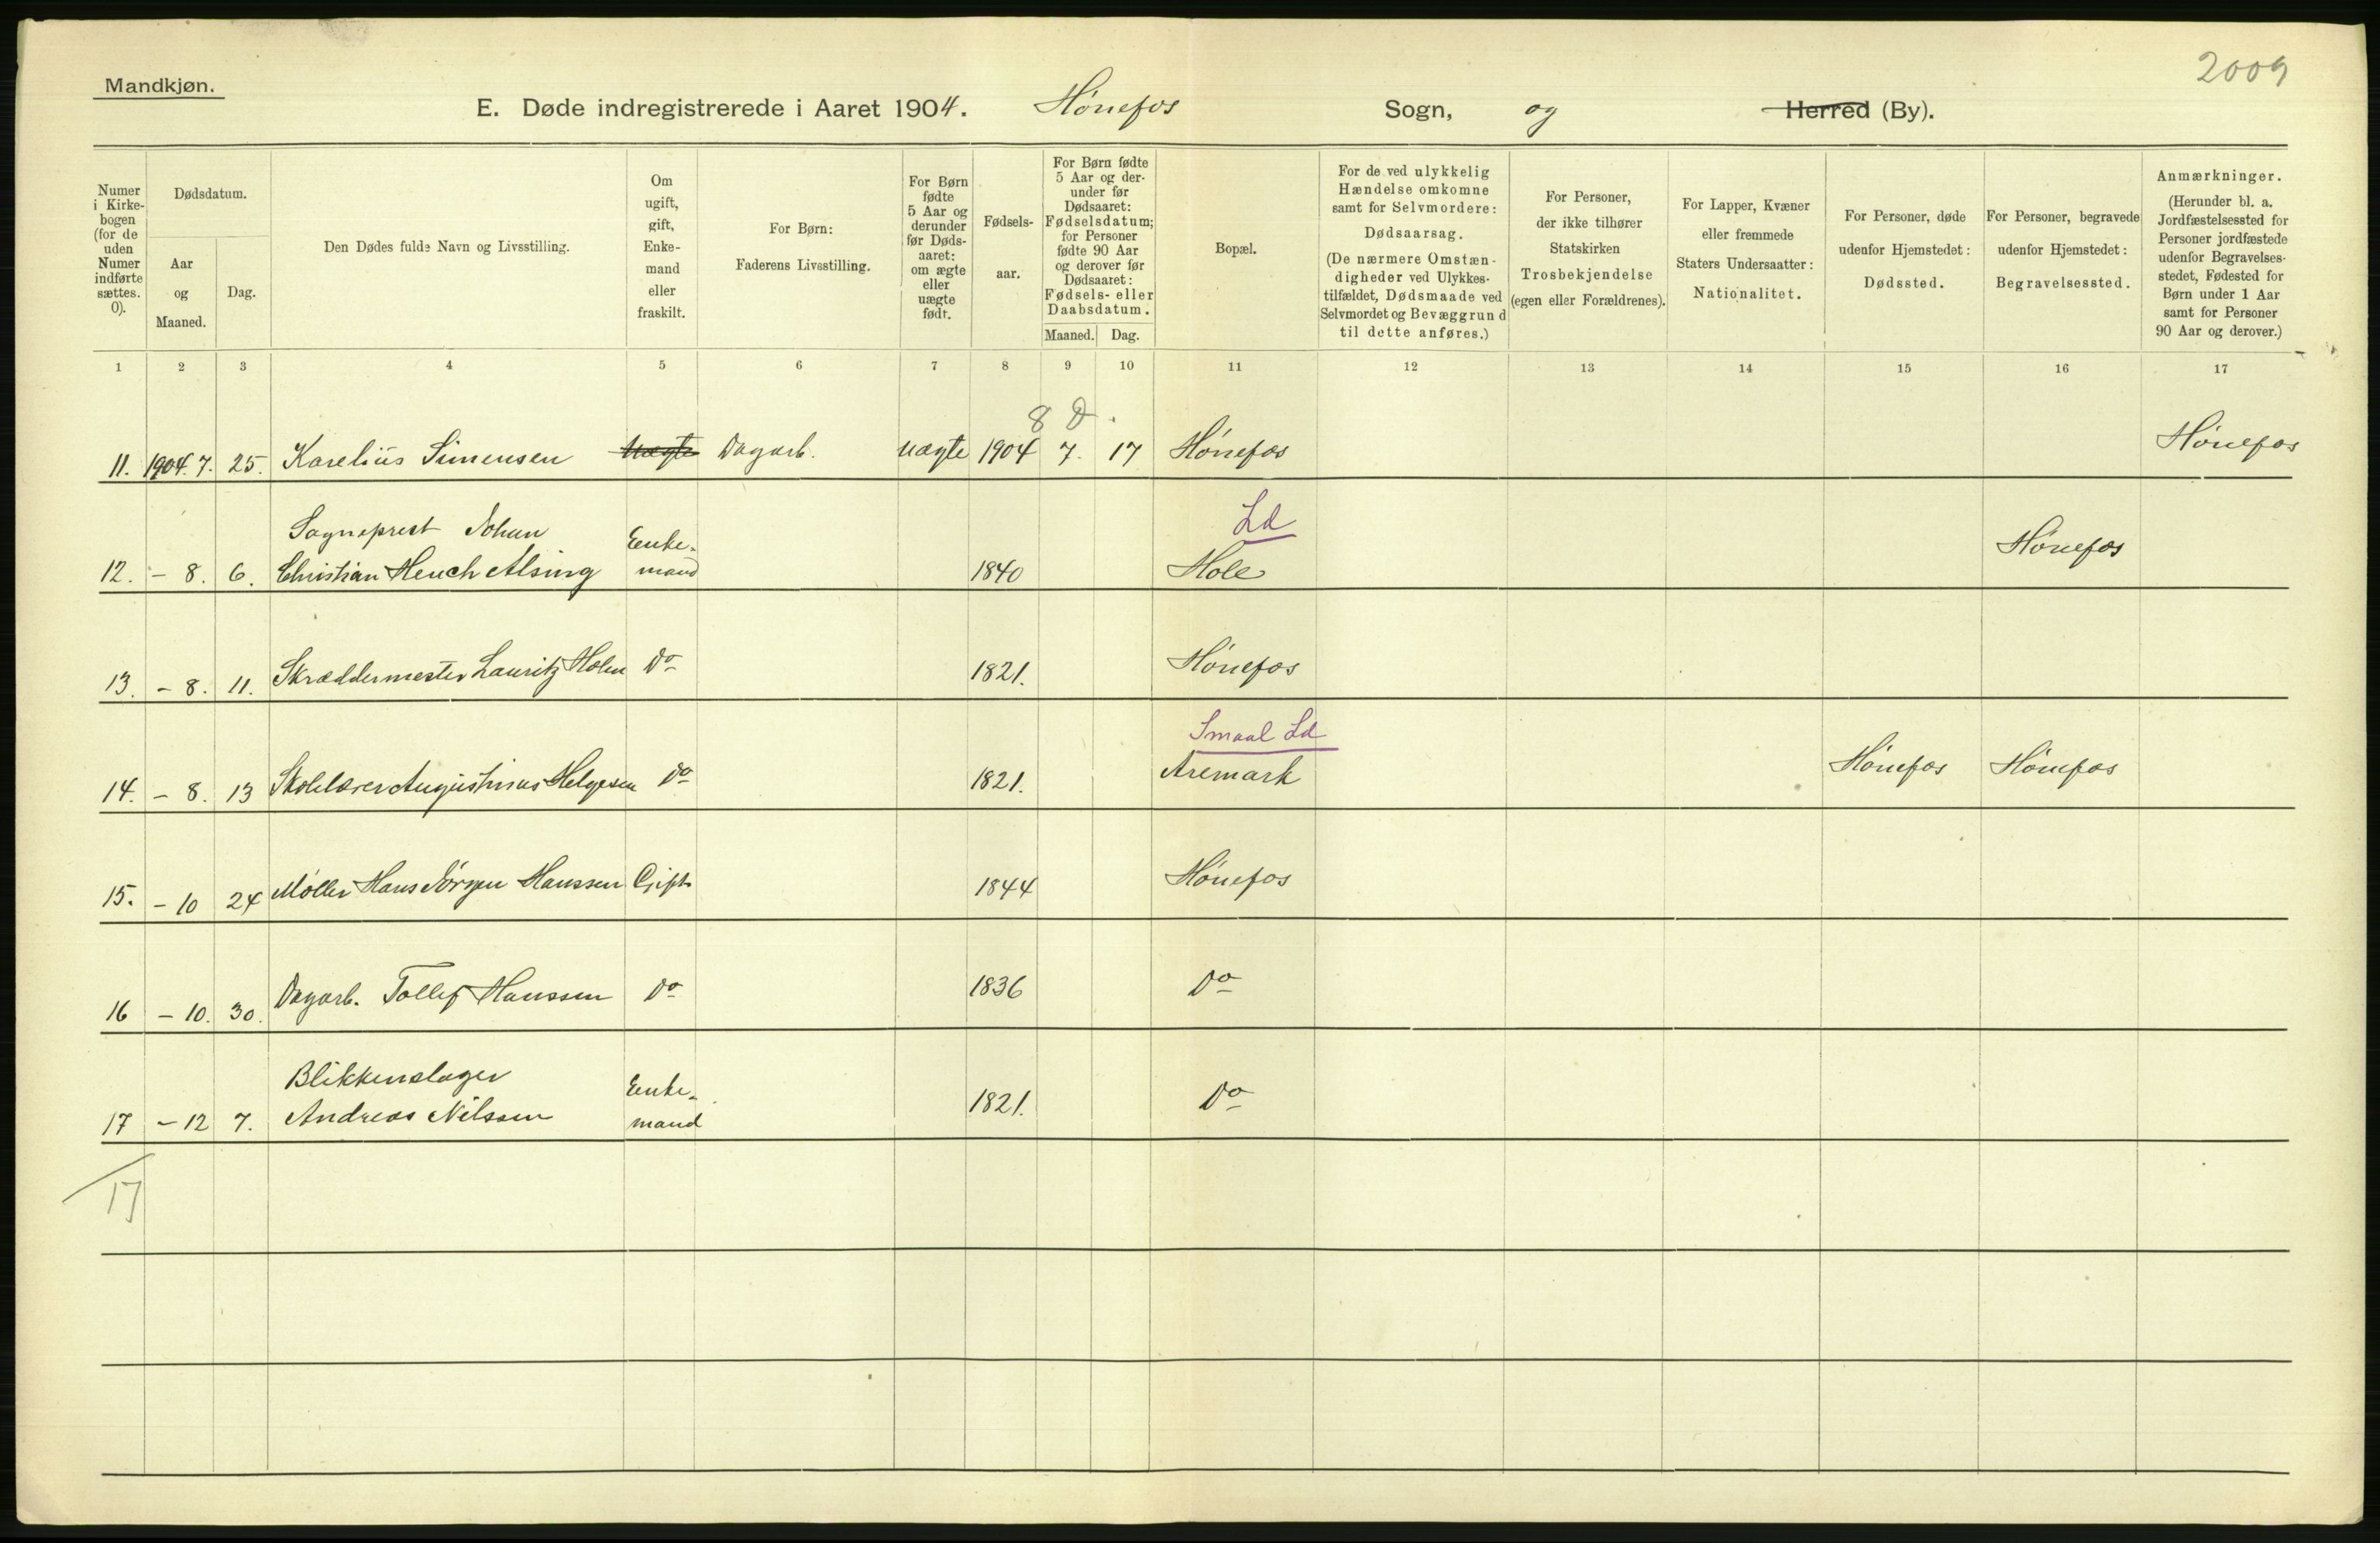 Mandkjøn.
2009
E. Døde indregistrerede i Aaret 1904. Hønefos Sogn, og Herred (By).
Numer i Kirke-bogen (for de uden Numer indførte sættes. 0).
Dødsdatum.
Aar og Maaned.
Dag.
Den Dødes fulde Navn og Livsstilling.
Om ugift, gift, Enke-mand eller fraskilt.
For Børn: Faderens Livsstilling.
For Børn fødte 5 Aar og derunder før Døds-aaret: om ægte eller uægte født.
Fødsels-aar.
For Børn fødte 5 Aar og der-under før Dødsaaret: Fødselsdatum; for Personer fødte 90 Aar og derover før Dødsaaret: Fødsels- eller Daabsdatum.
Maaned. Dag.
Bopæl.
For de ved ulykkelig Hændelse omkomne samt for Selvmordere: Dødsaarsag. (De nærmere Omstæn-digheder ved Ulykkes-tilfældet, Dødsmaade ved Selvmordet og Bevæggrund til dette anføres.)
For Personer, der ikke tilhører Statskirken Trosbekjendelse (egen eller Forældrenes).
For Lapper, Kvæner eller fremmede Staters Undersaatter: Nationalitet.
For Personer, døde udenfor Hjemstedet: Dødssted.
For Personer, begravede udenfor Hjemstedet: Begravelsessted.
Anmærkninger. (Herunder bl. a. Jordfæstelsessted for Personer jordfæstede udenfor Begravelses-stedet, Fødested for Børn under 1 Aar samt for Personer 90 Aar og derover.)
1 2 3 4 5 6 7 8 9 10 11 12 13 14 15 16 17
8 D.
11. 1904. 7. 25. Karelius Simensen Uægte Dagarb. uægte 1904 7. 17 Hønefos Hønefos
Sogneprest Johan Enke- Ld Hønefos
12. - 8. 6. Christian Heuch Alsing mand 1840 Hole
13. - 8. 11. Skræddermester Lauritz Holm Do 1821. Hønefos
Smaal Ld
14. - 8. 13 Skolelærer Augustinus Helgesen Do 1821. Aremark Hønefos Hønefos
15. - 10 24 Møller Hans Jörgen Hanssen Gift 1844 Hønefos
16 - 10. 30. Dagarb. Tollef Hanssen Do 1836 Do
Blikkenslager Enke-
17 - 12 7. Andreas Nilssen mand 1821. Do
17